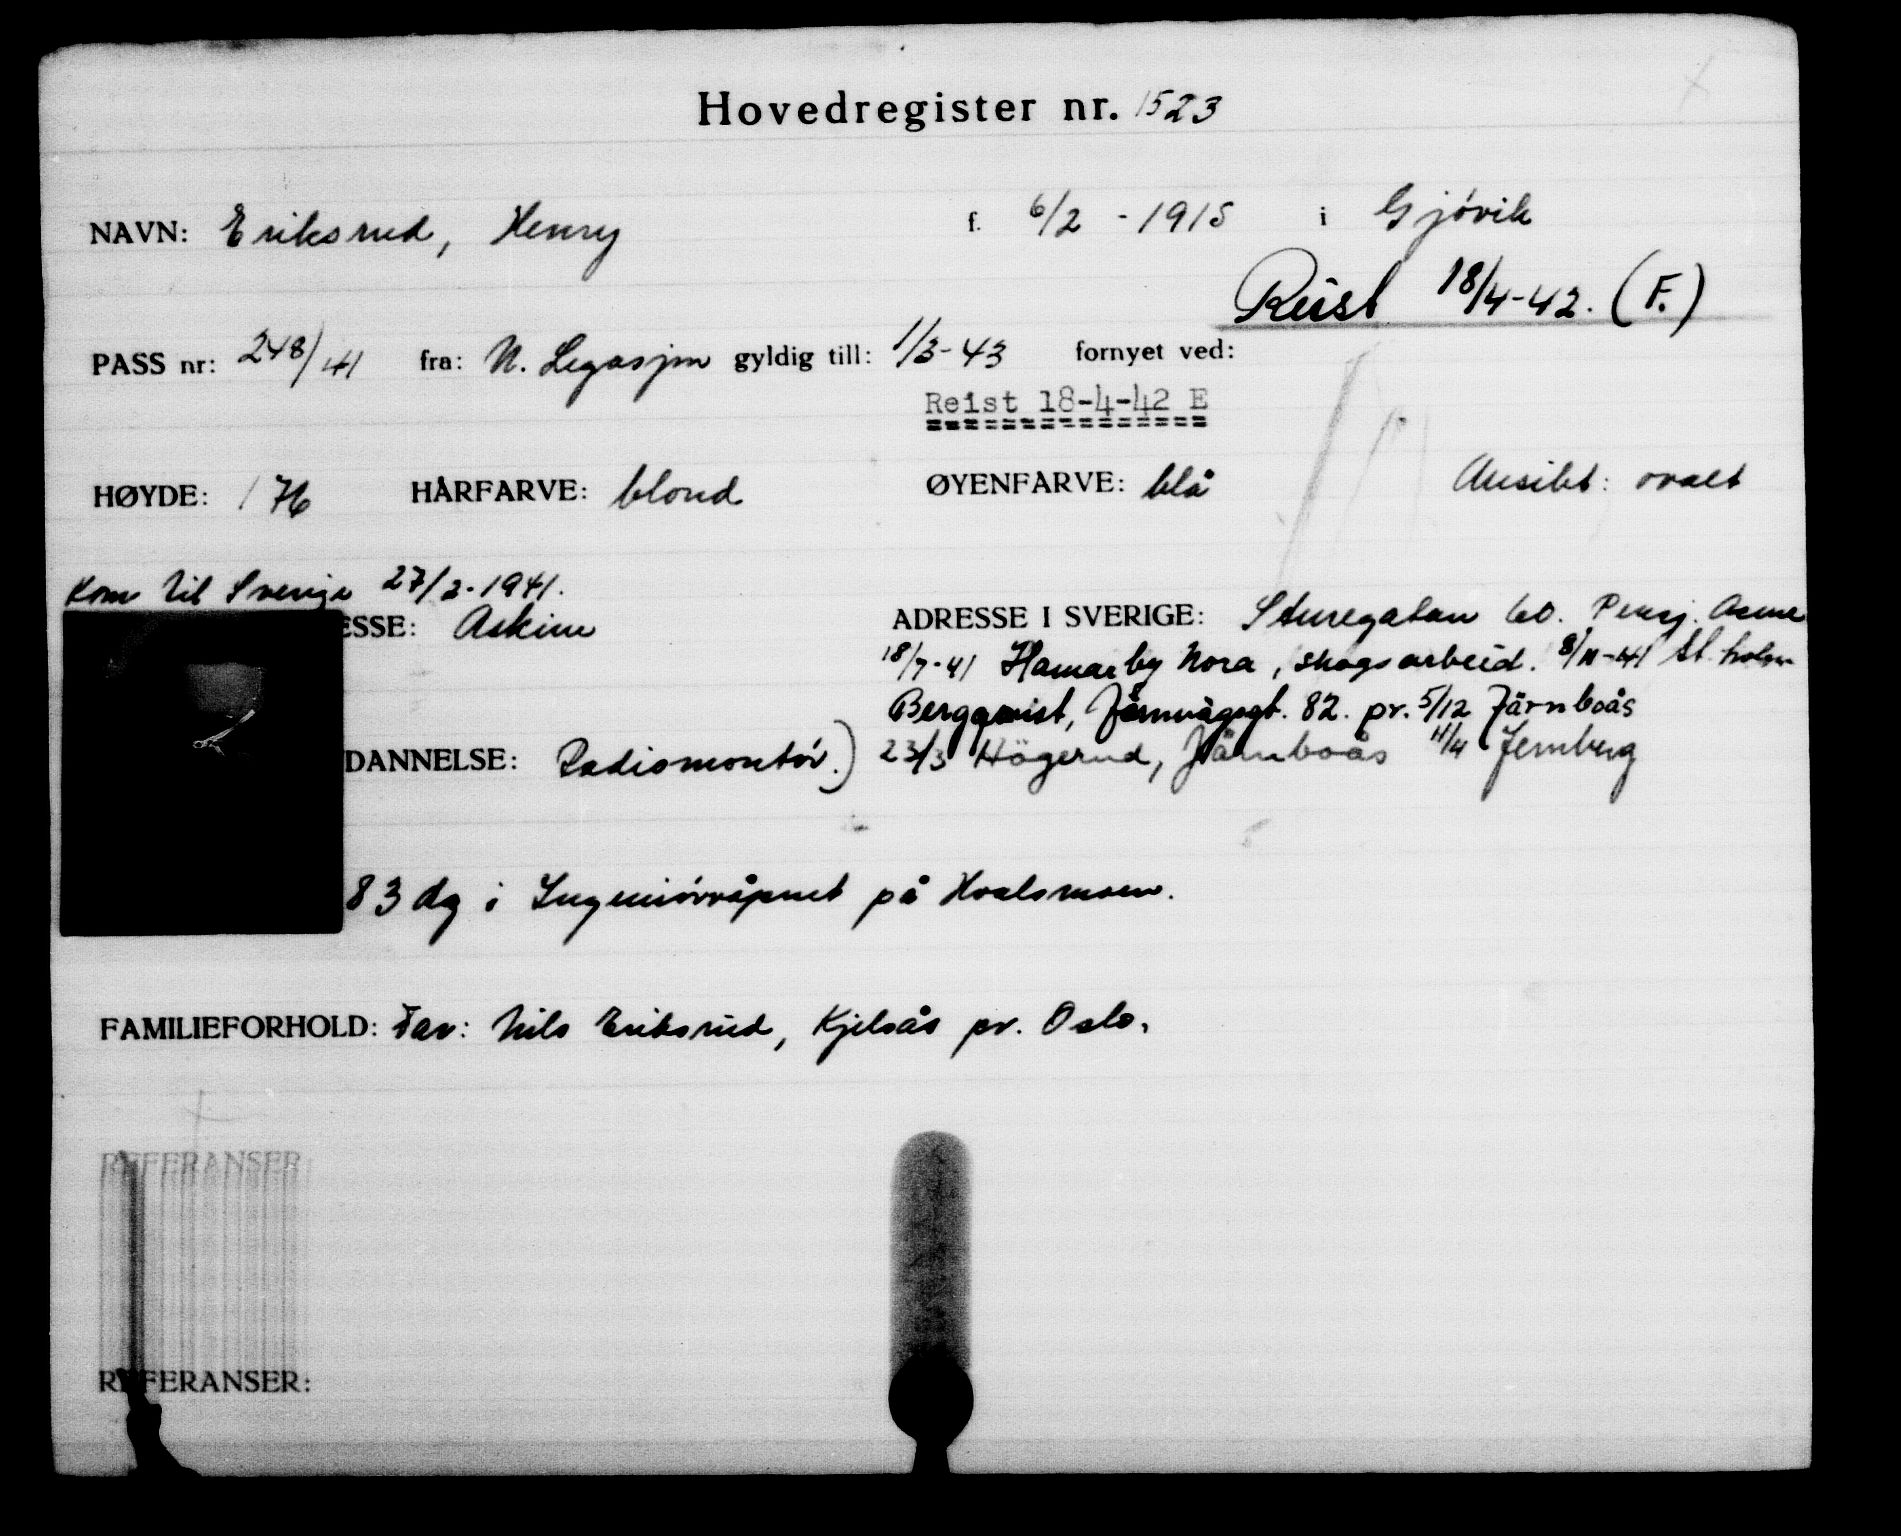 Hovedregister nr. 1523
NAVN: Eriksrud, Henry f. 6/2 - 1915 i Gjövik
Reist 18/4-42. (F.)
PASS nr: 248/41 fra: N. Legasjon gyldig till: 1/3-43 fornyet ved:
Reist 18-4-42 E
HØYDE: 176 HÅRFARVE: blond ØYENFARVE: blå Ansikt: ovalt
Kom til Sverige 27/2-1941.
ESSE: Askim ADRESSE I SVERIGE: Sturegatan 60. Pensj. Acme
18/7-41 Hamarby Nora, skogsarbeid. 8/11-41 St.holm
Bergqvist, Järnvägsgt. 82. pr. 5/12 Järnboås
DANNELSE: Radiomontör.) 23/3 Högerud, Järnboås 11/4 Jernberg
83 dg i Ingeniörvåpnet på Hvalsmoen.
FAMILIEFORHOLD: Far: Nils Eriksrud, Kjelsås pr. Oslo.
REFERANSER
REFERANSER: